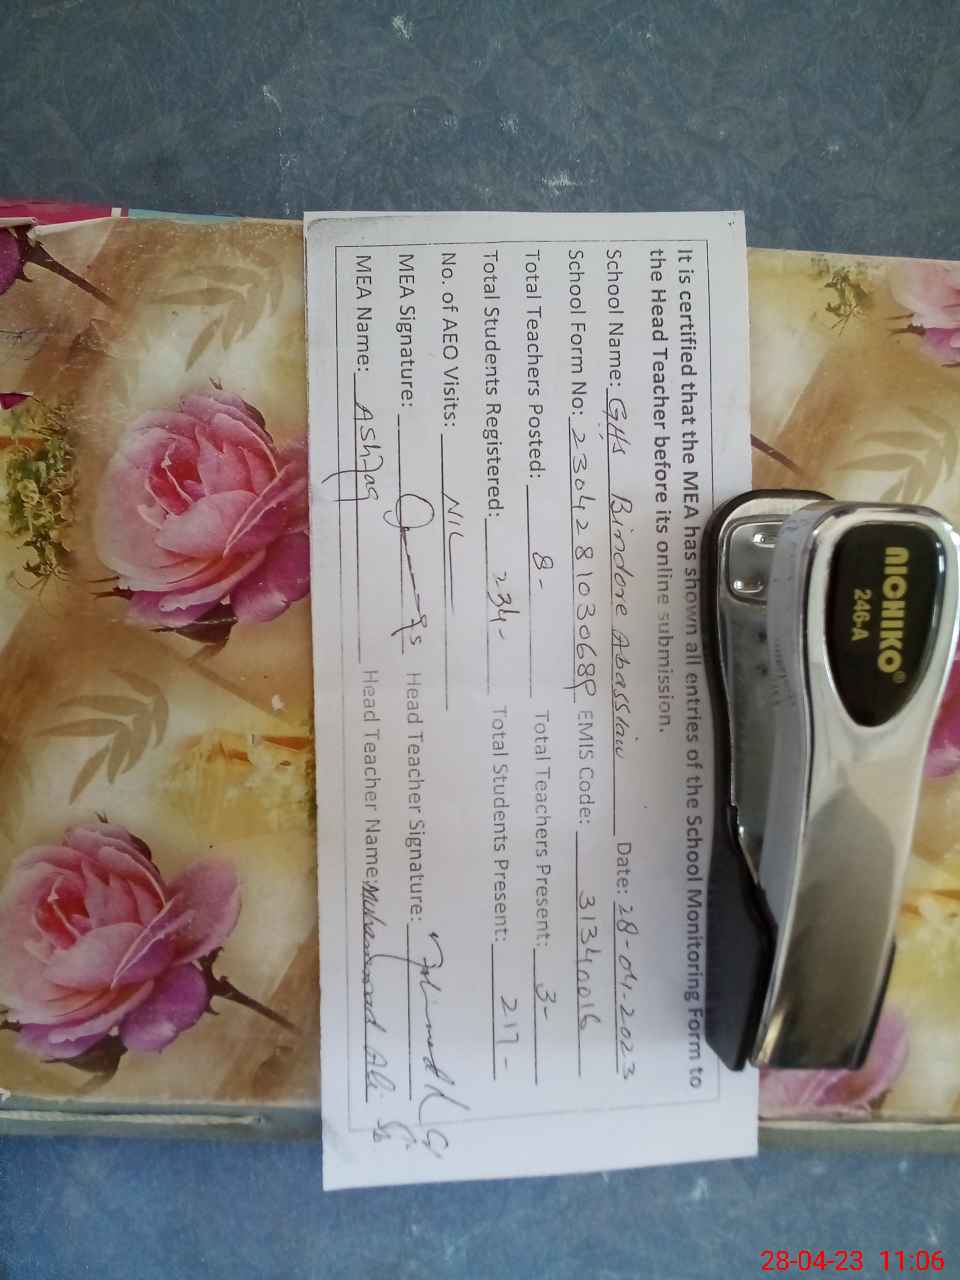 It is certified that the MEA has shown all entries of the School Monitoring Form to
the Head Teacher before its online submission.
School Name: GHS Bindore Abassian Date: 28-04-2023
School Form No: 2304281030689 EMIS Code: 31340016
Total Teachers Posted: 8- Total Teachers Present: 3-
Total Students Registered: 234- Total Students Present: 217-
No. of AEO Visits: NIL
MEA Signature: Head Teacher Signature:
MEA Name: Ashfaq Head Teacher Name: Muhammad Ali
NICHIKO®
246-A
28-04-23 11:06